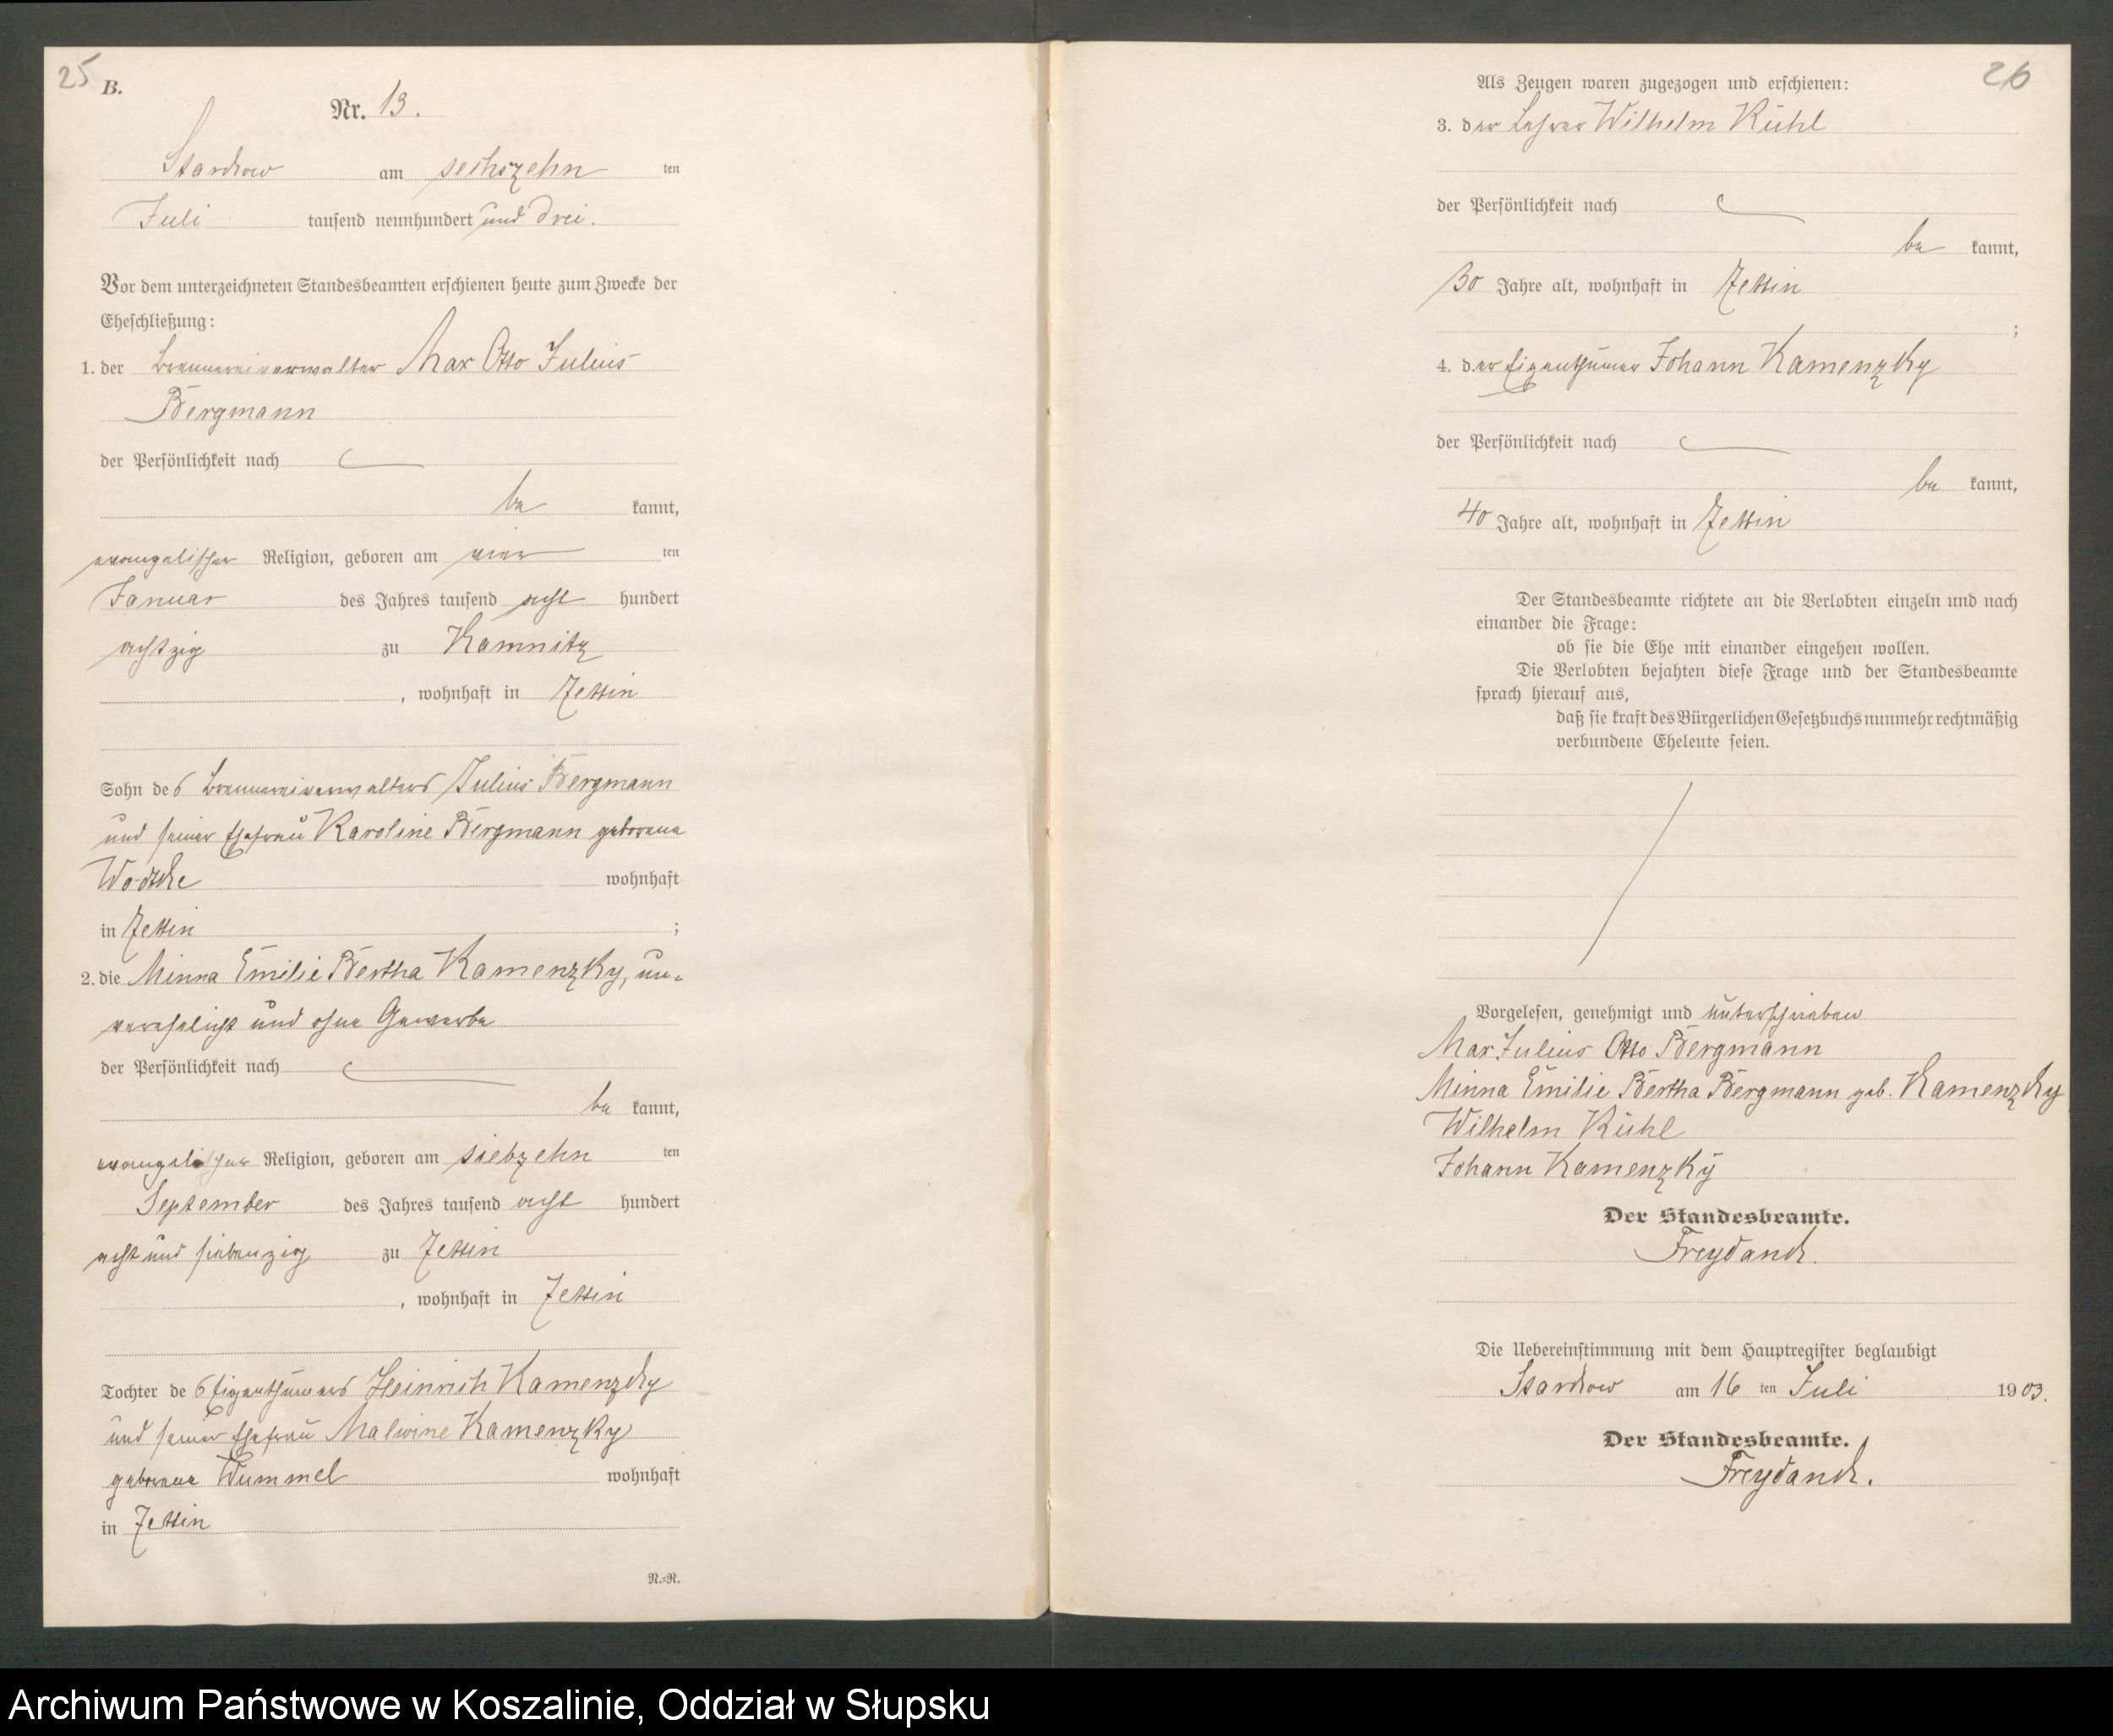 25
B.
Nr. 13.
Starkow am sechszehn ten
Juli tausend neunhundert und drei.
Vor dem unterzeichneten Standesbeamten erschienen heute zum Zwecke der
Eheschließung:
1. der Brennereiverwalter Max Otto Julius
Bergmann
der Persönlichkeit nach
be kannt,
evangelischer Religion, geboren am vier ten
Januar des Jahres tausend acht hundert
achtzig zu Kamnitz
, wohnhaft in Zettin
Sohn des Brennereiverwalters Julius Bergmann
und seiner Ehefrau Karoline Bergmann geborene
wohnhaft
in Zettin ;
2. die Minna Emilie Bertha Kamenzky, un-
verehelicht und ohne Gewerbe
der Persönlichkeit nach
be kannt,
evangelischer Religion, geboren am siebzehn ten
September des Jahres tausend acht hundert
acht und siebenzig zu Zettin
, wohnhaft in Zettin
Tochter des Eigenthümers Heinrich Kamenzky
und seiner Ehefrau Malwine Kamenzky
geborene Wummel wohnhaft
in Zettin
N.=N.
26
Als Zeugen waren zugezogen und erschienen:
3. der Lehrer Wilhelm Kühl
der Persönlichkeit nach
be kannt,
30 Jahre alt, wohnhaft in Zettin
;
4. der Eigenthümer Johann Kamenzky
der Persönlichkeit nach
be kannt,
40 Jahre alt, wohnhaft in Zettin
Der Standesbeamte richtete an die Verlobten einzeln und nach
einander die Frage:
ob sie die Ehe mit einander eingehen wollen.
Die Verlobten bejahten diese Frage und der Standesbeamte
sprach hierauf aus,
daß sie kraft des Bürgerlichen Gesetzbuchs nunmehr rechtmäßig
verbundene Eheleute seien.
Vorgelesen, genehmigt und unterschrieben
Max Julius Otto Bergmann
Minna Emilie Bertha Bergmann geb. Kamenzky
Wilhelm Kühl
Johann Kamenzky
Der Standesbeamte.
Freydanck.
Die Uebereinstimmung mit dem Hauptregister beglaubigt
Starkow am 16 ten Juli 1903.
Der Standesbeamte.
Freydanck.
Archiwum Państwowe w Koszalinie, Oddział w Słupsku